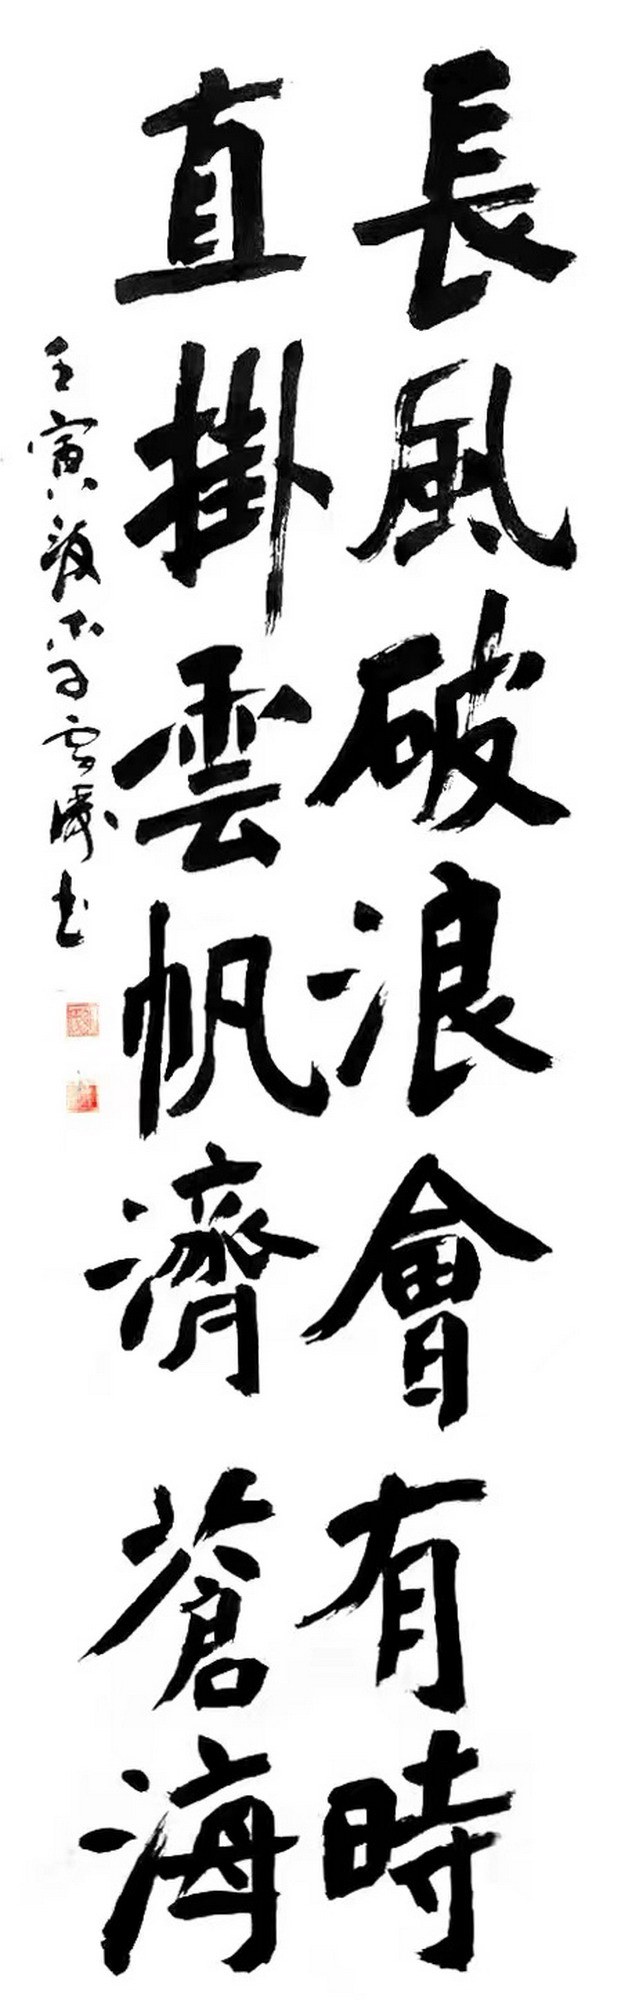 長風破浪會有時
直掛雲帆濟滄海
壬寅 雲 書